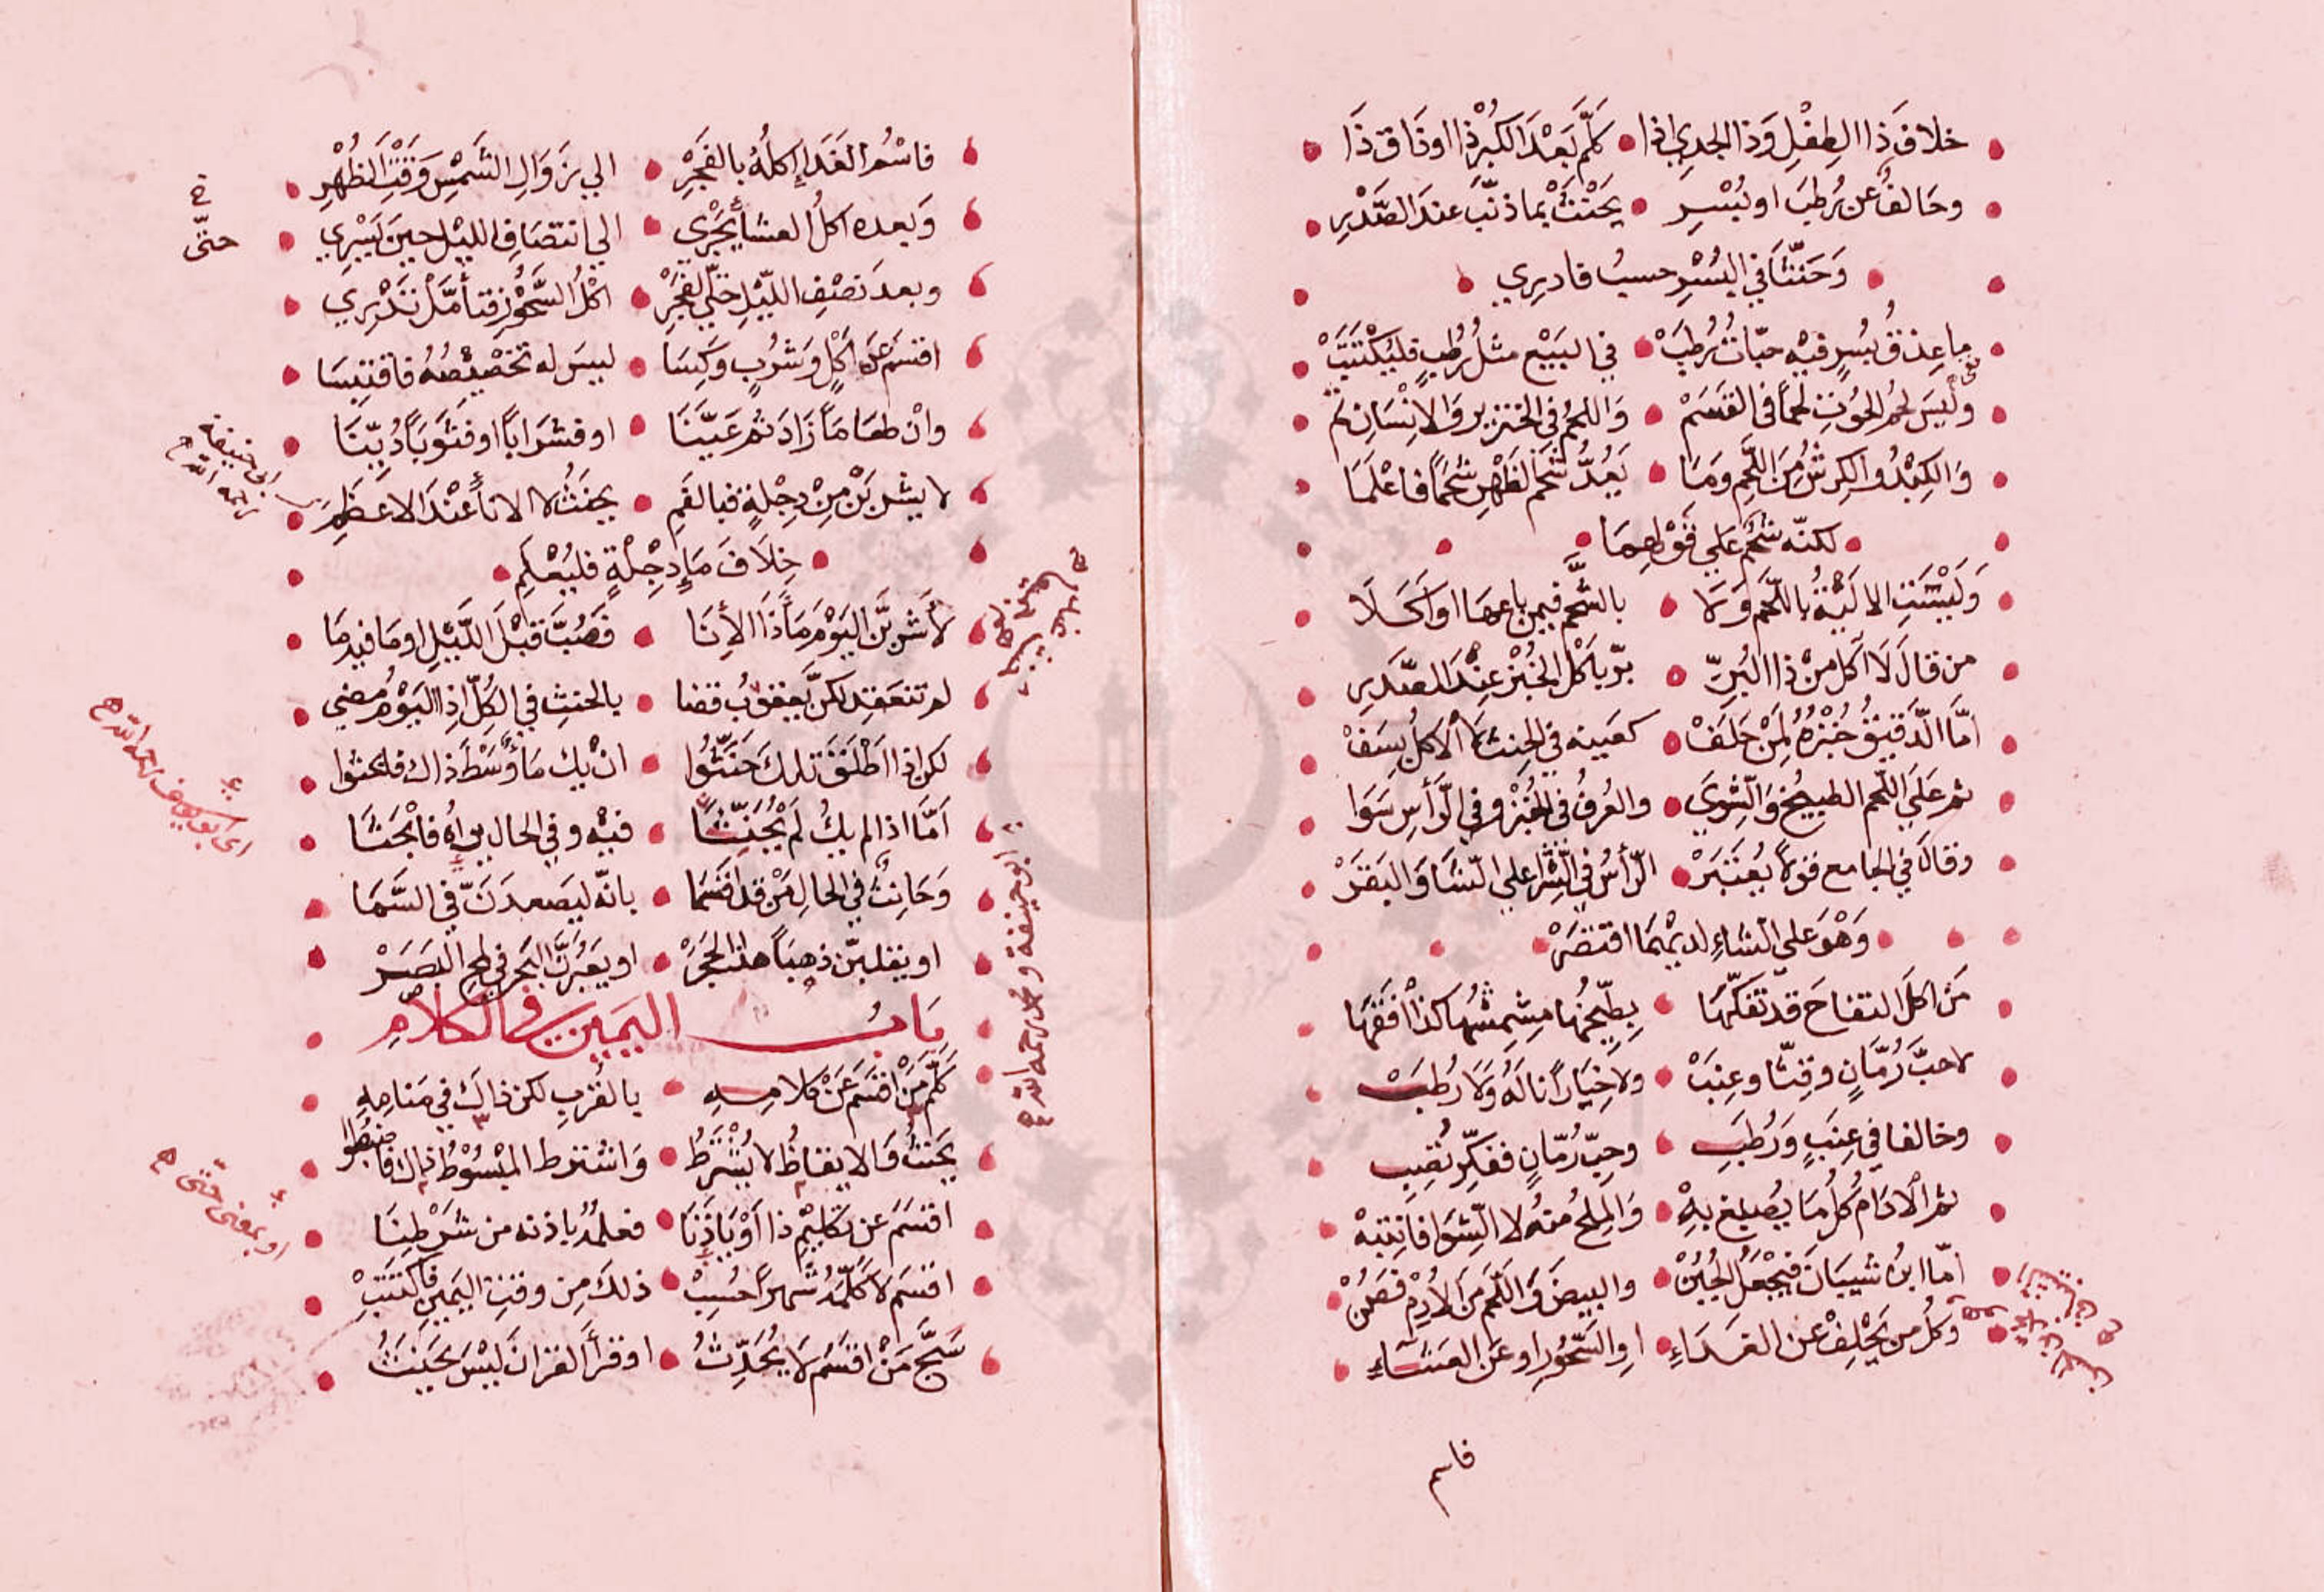 خلاف ذا الطفل وذا الجدي اذا كلم بعد الكبر ذا او ذاق ذا
وحالف عن رطب او بسر يحنث بما ذنب عند الصدر
وحنثا في البسر حسب فادري
ما عذق بسر فيه حبات رطب في البيع مثل رطب فليكتتب
وليس لحم الحوت لحما في القسم واللحم في الخنزير والانسان لم
والكبد والكرش من اللحم وما يعد شحم الظهر شحما فاعلما
لكنه شحم على قولهما
وليست الالية باللحم ولا بالشحم فيمن باعها او اكلا
من قال لا آكل من ذا البر بر باكل الخبز عند الصدر
اما الدقيق خبزه لمن حلف كعينه في الحنث لا اكل بسف
ثم على اللحم الطبيخ والشوي والعرف في الخبز وفي الرأس سوا
وقال في الجامع قولا يعتبر الرأس في الشرا على الشا والبقر
وهو على الشاء لديهما اقتصر
من اكل التفاح قد تفكها بطيخها مشمشها كذا افقها
لا حب رمان وقثا وعنب ولا خيارا ناله ولا رطب
وخالفا في عنب ورطب وحب رمان ففكر تصب
ثم الادام كل ما يصطبغ به والملح منه لا الشوا فانتبه
اما ابن شيبان فيجعل الجبن والبيض واللحم من الادم فصن
وكل من يحلف عن الغداء او السحور او عن العشاء
فاسم
فاسم الغداء اكله بالفجر الي زوال الشمس وقت الظهر
وبعده اكل العشا يجري الي انتصاف الليل حين يسري
خ
حتى
وبعد نصف الليل حتى الفجر اكل السحور فتأمل تدري
اقسم عن اكل وشرب وكسا ليس له تخصيصه فاقتبسا
وان طعاما زاد ثم عينا او فشرابا او فثوبا دينا
ابي حنيفة رحمه الله
لا يشربن من دجلة فبالفم يحنث لا الانا عند الاعظم
خلاف ماء دجلة فليعلم
لأشربن اليوم ماء ذا الأنا فصب قبل الليل او ما فيه ما
لم تنعقد لكن يعقوب قضا بالحنث في الكل اذا اليوم مضي
اي ابو يوسف رحمه الله
لكن اذا اطلق تلك حنثوا ان يك ماء وسط ذاك فابحثوا
اما اذا لم يك لم يحنثا فيه وفي الحال يراه فابحثا
ابو حنيفة ومحمد رحمه الله
وحانث في الحال من قد اقسما بانه ليصعدن في السما
او يقلبن ذهبا هذا الحجر او يعبرن البحر في لمح البصر
باب اليمين في الكلام
كلم من اقسم عن كلامه بالقرب لكن ذاك في منامه
يحنث والايقاظ لا يشترط واشترط المبسوط ذاك فاضبطوا
اقسم عن تكليم ذا او يأذنا فعلمه باذنه من شرطنا
او بمعنى حتى
اقسم لا كلمه شهرا حسب ذلك من وقت اليمين فاكتتب
سبح من اقسم لا يحدث او قرأ القران ليس يحنث